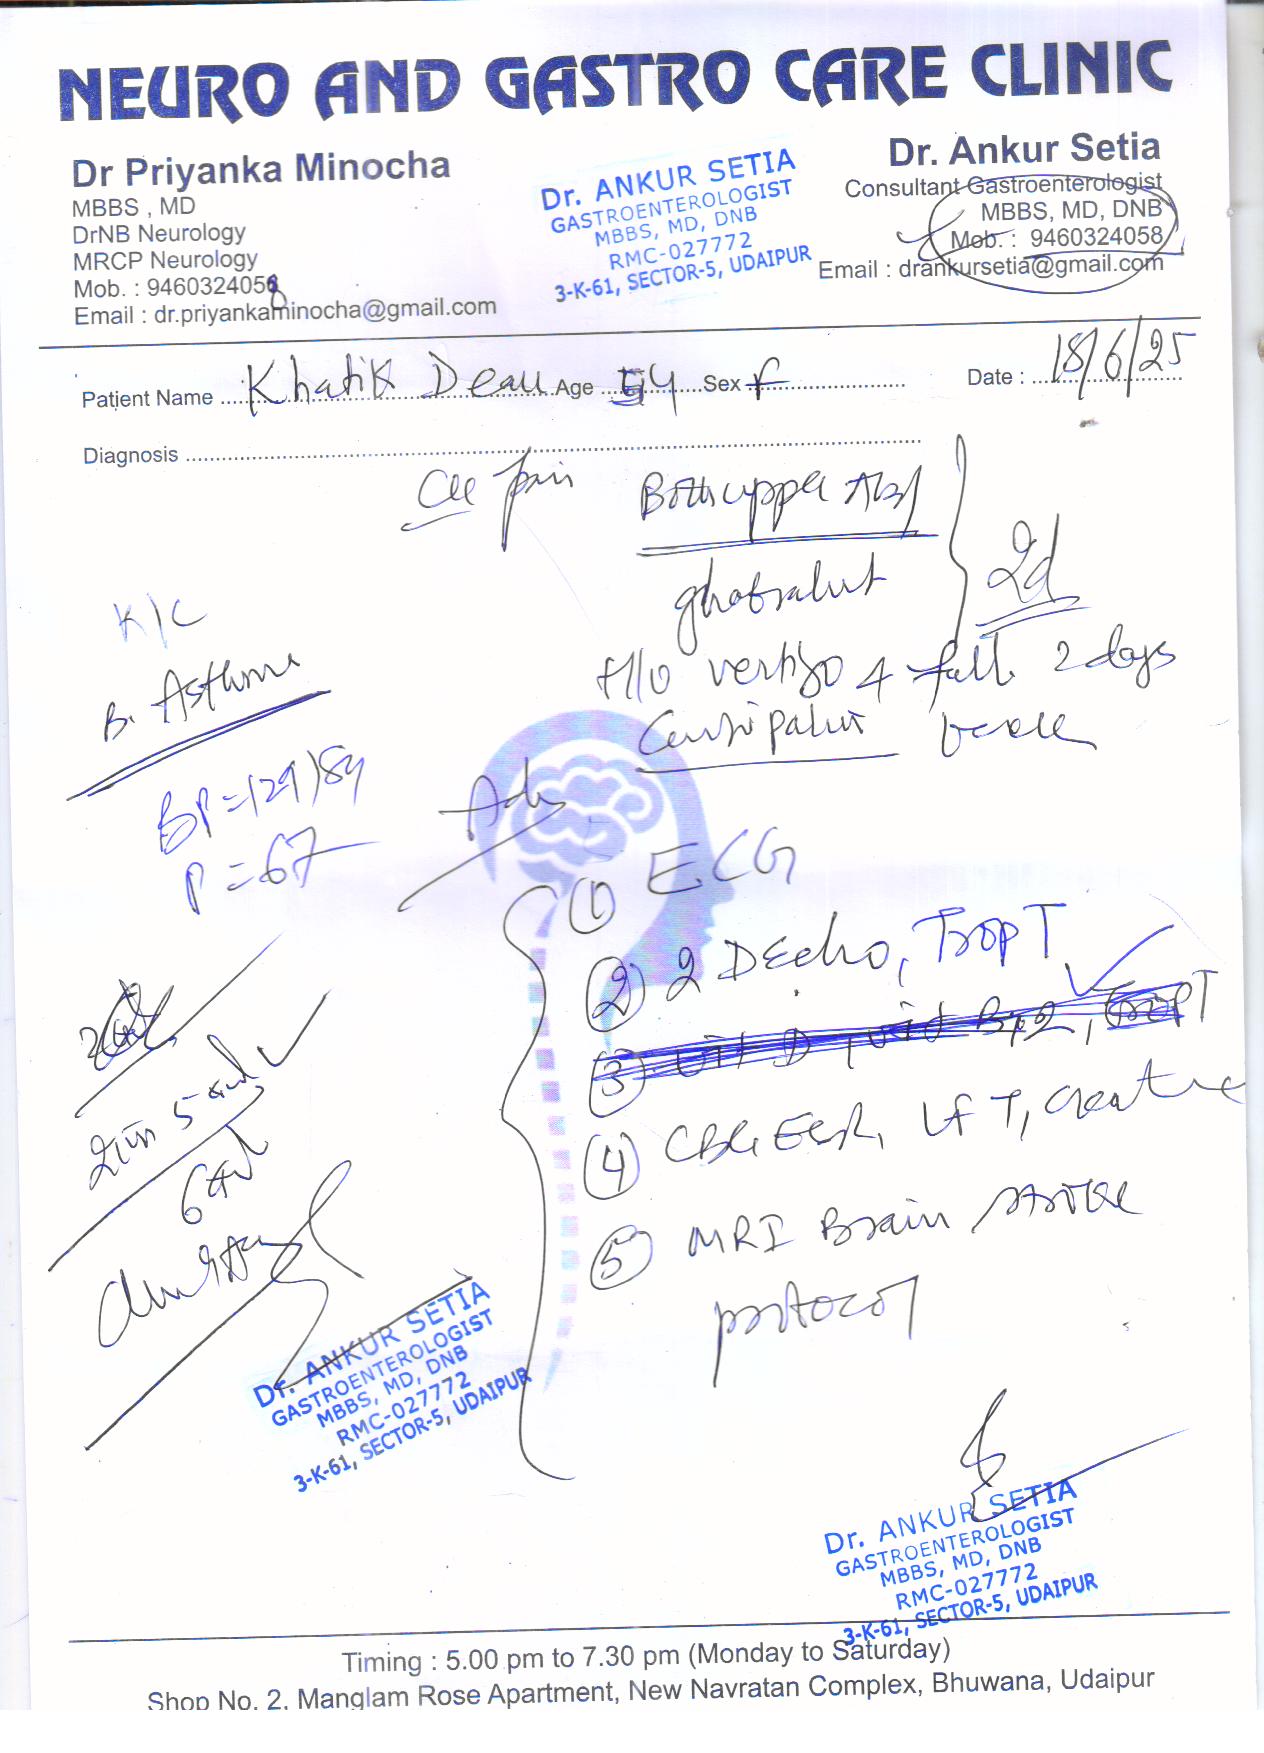 NEURO AND GASTRO CARE CLINIC
Dr Priyanka Minocha
MBBS , MD
DrNB Neurology
MRCP Neurology
Mob. : 9460324058
Email : dr.priyankaminocha@gmail.com
Dr. ANKUR SETIA
GASTROENTEROLOGIST
MBBS, MD, DNB
RMC-027772
3-K-61, SECTOR-5, UDAIPUR
Dr. Ankur Setia
Consultant Gastroenterologist
MBBS, MD, DNB
Mob. : 9460324058
Email : drankursetia@gmail.com
Patient Name Khatik Age Sex F Date : 18/6/25
Diagnosis
pain Both upper Abd
2d
K/C
B. Asthma
H/O vertigo & fall 2 days
BP = 129/84
P = 67
Adv
① ECG
② 2 DEcho, Trop T
③ Vit D, Vit B12, Trop T
④ CBC, ESR, LFT, Creatine
⑤ MRI Brain stroke
protocol
Dr. ANKUR SETIA
GASTROENTEROLOGIST
MBBS, MD, DNB
RMC-027772
3-K-61, SECTOR-5, UDAIPUR
Dr. ANKUR SETIA
GASTROENTEROLOGIST
MBBS, MD, DNB
RMC-027772
3-K-61, SECTOR-5, UDAIPUR
Timing : 5.00 pm to 7.30 pm (Monday to Saturday)
Shop No. 2, Manglam Rose Apartment, New Navratan Complex, Bhuwana, Udaipur